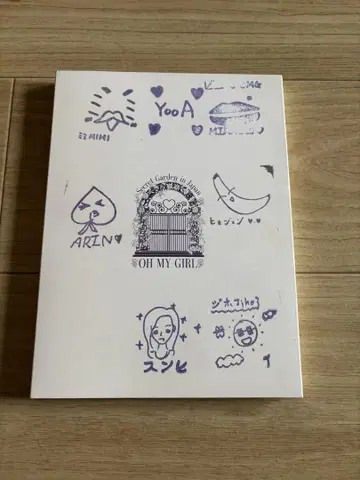 YooA
ミミ MIMI
ARIN
Secret Garden in Japan
OH MY GIRL
ヒョジョン
スンヒ
ジホ Jiho